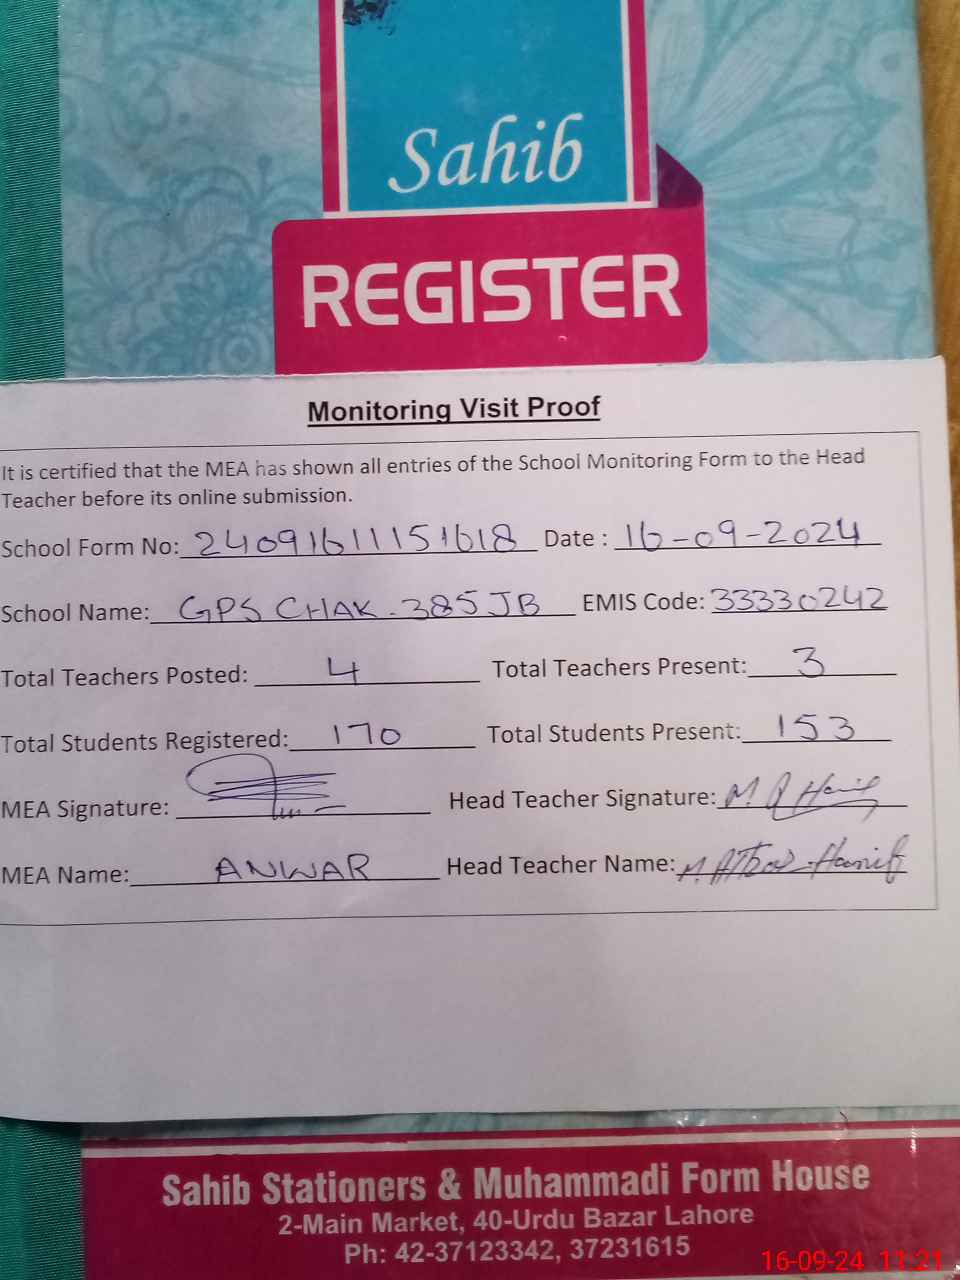 Sahib
REGISTER
Monitoring Visit Proof
It is certified that the MEA has shown all entries of the School Monitoring Form to the Head
Teacher before its online submission.
School Form No: 24091611151618 Date : 16-09-2024
School Name: GPS CHAK.385JB EMIS Code: 33330242
Total Teachers Posted: 4 Total Teachers Present: 3
Total Students Registered: 170 Total Students Present: 153
MEA Signature: Head Teacher Signature: M Hanif
MEA Name: ANWAR Head Teacher Name: M. Hanif
Sahib Stationers & Muhammadi Form House
2-Main Market, 40-Urdu Bazar Lahore
Ph: 42-37123342, 37231615
16-09-24 11:21